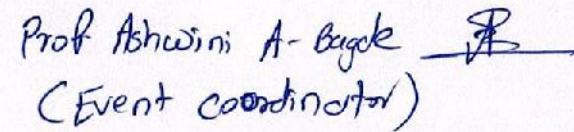 Prof Ashwini A-Bagde
(Event coordinator)